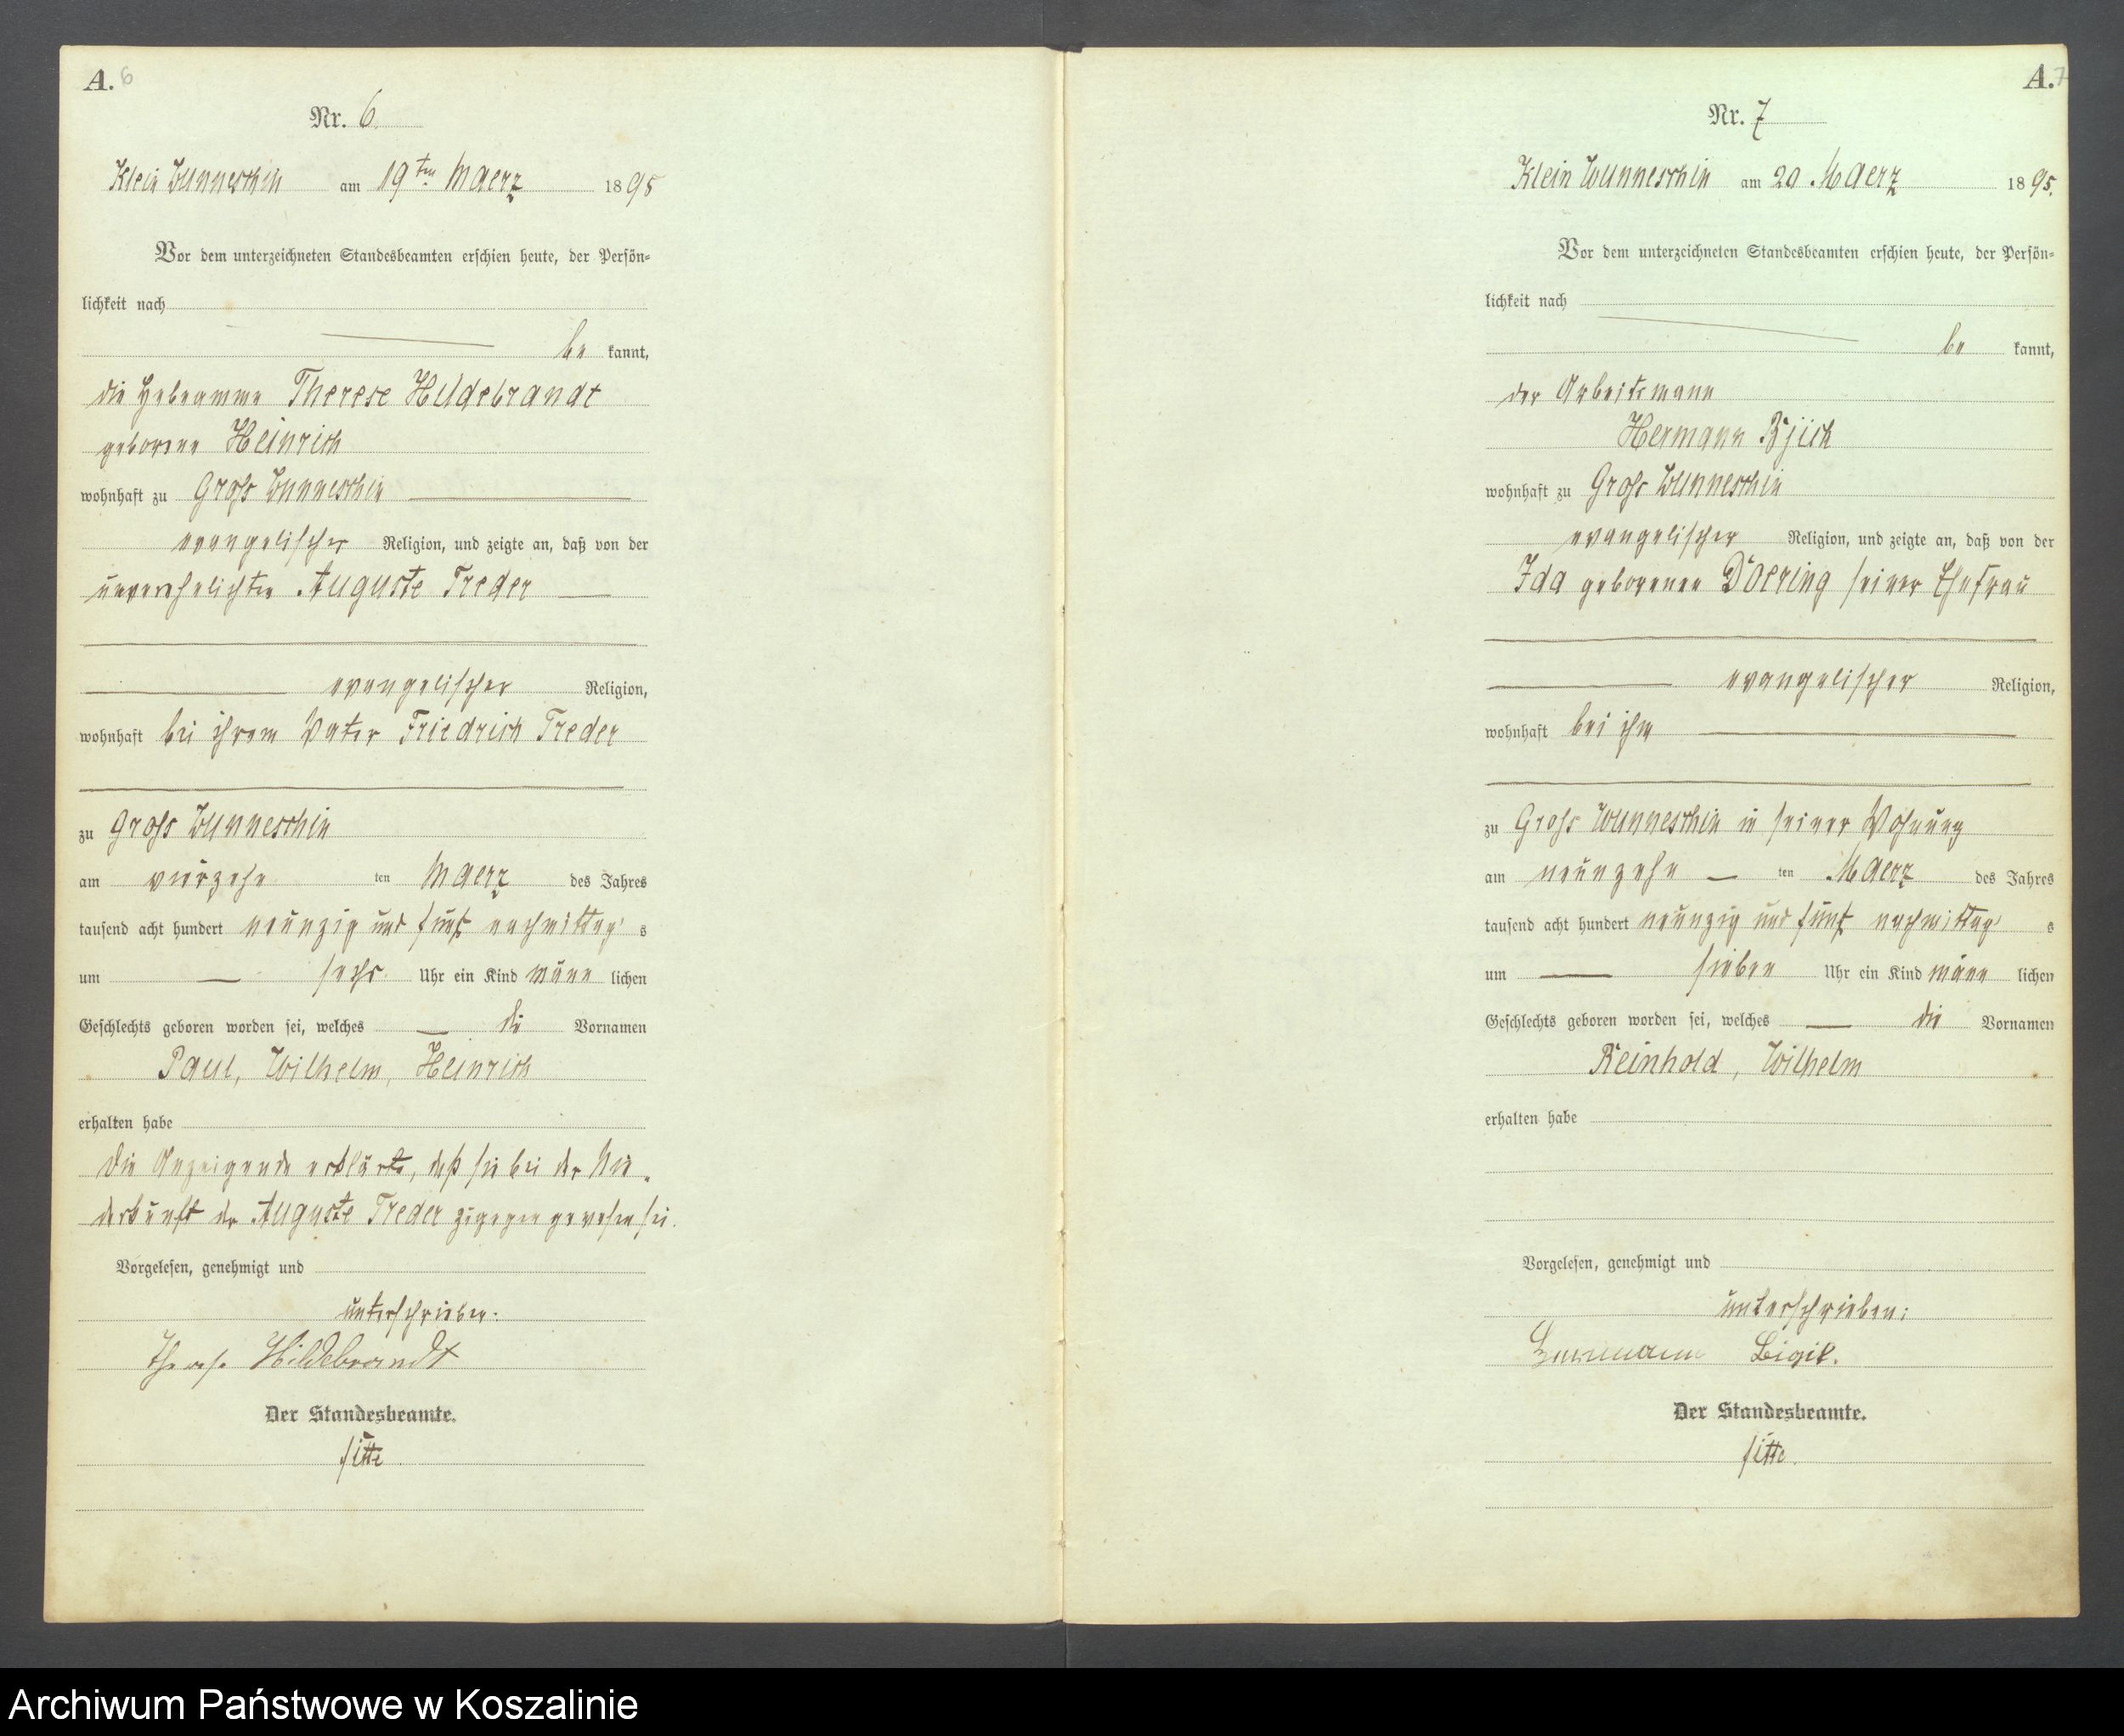 A. 6
Nr. 6.
Klein Wunneschin am 19ten Maerz 1895
Vor dem unterzeichneten Standesbeamten erschien heute, der Persön-
lichkeit nach
be kannt,
die Hebeamme Therese Hildebrandt
geborene Heinrich
wohnhaft zu Gross Wunneschin
evangelischer Religion, und zeigte an, daß von der
unverehelichten Auguste Treder
evangelischer Religion,
wohnhaft bei ihrem Vater Friedrich Treder
zu Gross Wunneschin
am vierzehn ten Maerz des Jahres
tausend acht hundert neunzig und fünf nachmittag s
um sechs Uhr ein Kind männ lichen
Geschlechts geboren worden sei, welches die Vornamen
Paul, Wilhelm, Heinrich
erhalten habe
Die Anzeigende erklärte, daß sie bei der Nie-
derkunft der Auguste Treder zugegen gewesen sei.
Vorgelesen, genehmigt und
unterschrieben:
Therese Hildebrandt
Der Standesbeamte.
A. 7
Nr. 7
Klein Wunneschin am 20 Maerz 1895.
Vor dem unterzeichneten Standesbeamten erschien heute, der Persön-
lichkeit nach
be kannt,
der Arbeitsmann
Hermann
wohnhaft zu Gross Wunneschin
evangelischer Religion, und zeigte an, daß von der
Ida geborenen Doering seiner Ehefrau
evangelischer Religion,
wohnhaft bei ihm
zu Gross Wunneschin in seiner Wohnung
am neunzehn ten Maerz des Jahres
tausend acht hundert neunzig und fünf nachmittag s
um sieben Uhr ein Kind männ lichen
Geschlechts geboren worden sei, welches die Vornamen
Reinhold, Wilhelm
erhalten habe
Vorgelesen, genehmigt und
unterschrieben:
Der Standesbeamte.
Archiwum Państwowe w Koszalinie